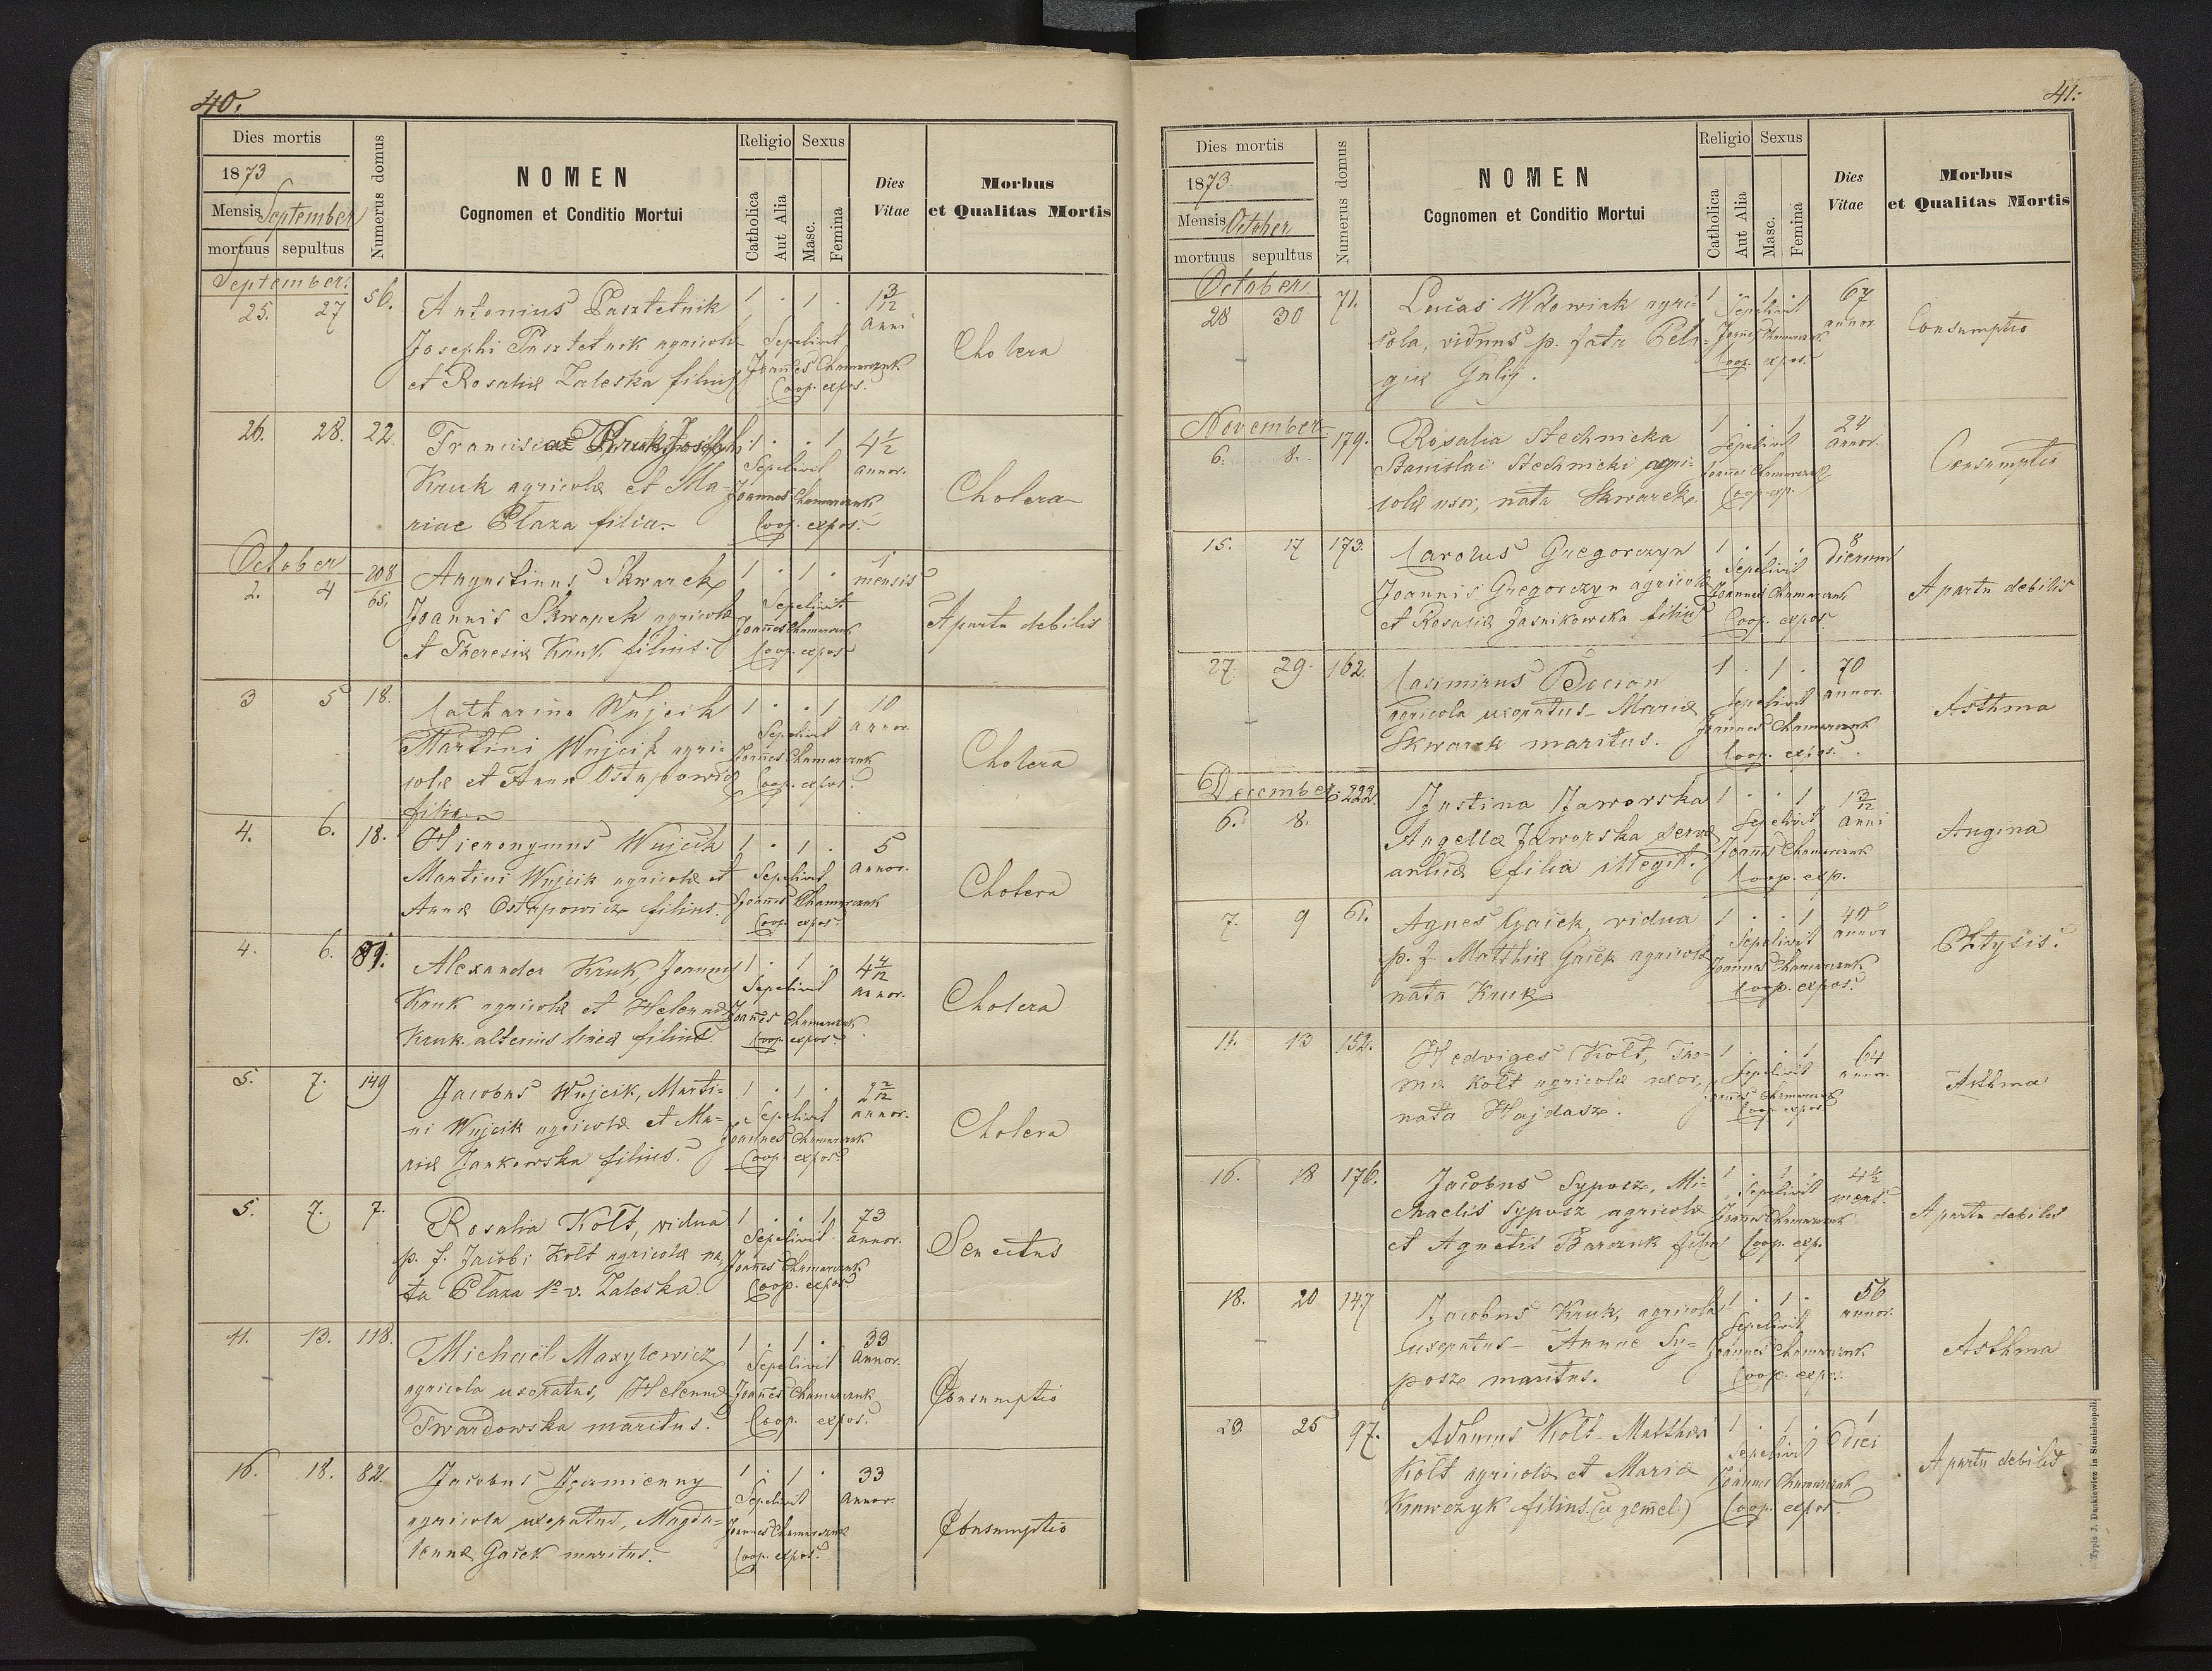 40.
Dies mortis
1873
Mensis September
mortuus sepultus
Numerus domus
NOMEN
Cognomen et Conditio Mortui
Religio
Catholica
Aut Alia
Sexus
Masc.
Femina
Dies
Vitae
Morbus
et Qualitas Mortis
September.
25. 27 56. Antonius Pasztetnik 1 . 1 . 1 3/12 Anni
Josephi Pasztetnik agricolæ Sepelivit
et Rosaliæ Zaleska filius Joannes Chamarczuk
Coop. expos.
Cholera
26. 28. 22. Francisca Kruk Josephi 1 . . 1 4 1/2 annor.
Kruk agricolæ et Ma- Sepelivit
riae Płaza filia Joannes Chamarczuk
Coop. expos.
Cholera
October
2. 4 208/65. Augustinus Skwarek 1 . 1 . 1 mensis
Joannis Skwarek agricolæ Sepelivit
et Theresiæ Kruk filius. Joannes Chamarczuk
Coop. expos
A partu debilis
3 5 18. Catharina Wujcik 1 . . 1 10 annor.
Martini Wujcik agri- Sepelivit
colæ et Annæ Ostapowicz Joannes Chamarczuk
filia Coop. expos.
Cholera
4. 6. 18. Hieronymus Wujcik 1 . 1 . 5 annor.
Martini Wujcik agricolæ et Sepelivit
Annæ Ostapowicz filius. Joannes Chamarczuk
Coop. expos.
Cholera
4. 6. 89. Alexander Kruk, Joannis 1 . 1 . annor.
Kruk agricolæ et Helennæ Sepelivit
Kruk alterius lineæ filius. Joannes Chamarczuk
Coop. expos.
Cholera
5. 7. 149 Jacobus Wujcik, Marti- 1 . 1 . 2 2/12 annor.
ni Wujcik agricolæ et Ma- Sepelivit
riæ Jankowska filius. Joannes Chamarczuk
Coop. expos.
Cholera
5. 7. 7. Rosalia Kołt, vidua 1 . . 1 73 annor.
p. f. Jacobi Kołt agricolæ na- Sepelivit
ta Płaza 1o v. Zaleska. Joannes Chamarczuk
Coop. expos.
Senectus
11. 13. 118. Michaël Maxylewicz 1 . 1 . 33 Annor.
agricola uxoratus, Helennæ Sepelivit
Twardowska maritus. Joannes Chamarczuk
Coop. expos.
Consumptio
16. 18. 82. Jacobus 1 . 1 . 33 Annor.
agricola uxoratus, Magda- Sepelivit
lennæ Gacek maritus. Joannes Chamarczuk
Coop. expos.
Consumptio
41.
Dies mortis
1873
Mensis October
mortuus sepultus
Numerus domus
NOMEN
Cognomen et Conditio Mortui
Religio
Catholica
Aut Alia
Sexus
Masc.
Femina
Dies
Vitae
Morbus
et Qualitas Mortis
October
28 30 71. Lucas Wdowiak agri- 1 . 1 . 67 annor
cola, viduus p. fata Pela- Sepelivit
giæ Gulij. Joannes Chamarczuk
Coop. expos.
Consumptio
November
6. 8. 179. Rosalia Stechnicka 1 . . 1 24 annor.
Stanislai Stechnicki agri- Sepelivit
colæ uxor, nata Skwarek. Joannes Chamarczuk
Coop. exp.
Consumptio
15. 17 173. Carolus Gregorczyn 1 . 1 . 8 dierum
Joannis Gregorczyn agricolæ Sepelivit
et Rosaliæ Jasnikowska filius Joannes Chamarczuk
Coop. expos.
A partu debilis
27. 29. 162. Casimirus Bocian 1 . 1 . 70 annor.
agricola uxoratus - Mariæ Sepelivit
Skwarek maritus. Joannes Chamarczuk
Coop. expos.
Asthma
December
6. 8. 222. Justina Jaworska 1 . . 1 1 3/12 Anni
Angellæ Jaworska serva Sepelivit
ancillæ filia illegit. Joannes Chamarczuk
Coop. exp.
Angina
7. 9 61. Agnes Gacek, vidua 1 . . 1 40 annor
p. f. Matthiæ Gacek agricolæ Sepelivit
nata Kruk Joannes Chamarczuk
Coop. expos.
Phtysis.
11. 13 152. Hedviges Kołt, Tho- 1 . . 1 64 annor.
mæ Kołt agricolæ uxor, Sepelivit
nata Hajdasz. Joannes Chamarczuk
Coop. expos
Asthma
16. 18 176. Jacobus Syposz, Mi- 1 . 1 . 4 1/2 mens.
chaelis Syposz agricolæ Sepelivit
et Agnetis Barczuk filius Joannes Chamarczuk
Coop. exp.
A partu debilis
18. 20 147 Jacobus Kruk, agricola 1 . 1 . 56 annor.
uxoratus - Annae Sy- Sepelivit
posz maritus. Joannes Chamarczuk
Coop. expos.
Asthma
23. 25 97. Adamus Kołt - Matthæi 1 . 1 . 1 diei
Kołt agricolæ et Mariæ Sepelivit
Krawczyk filius. (a gemel) Joannes Chamarczuk
Coop. expos.
A partu debilis.
Typis J. Dankiewicz in Stanislaopoli